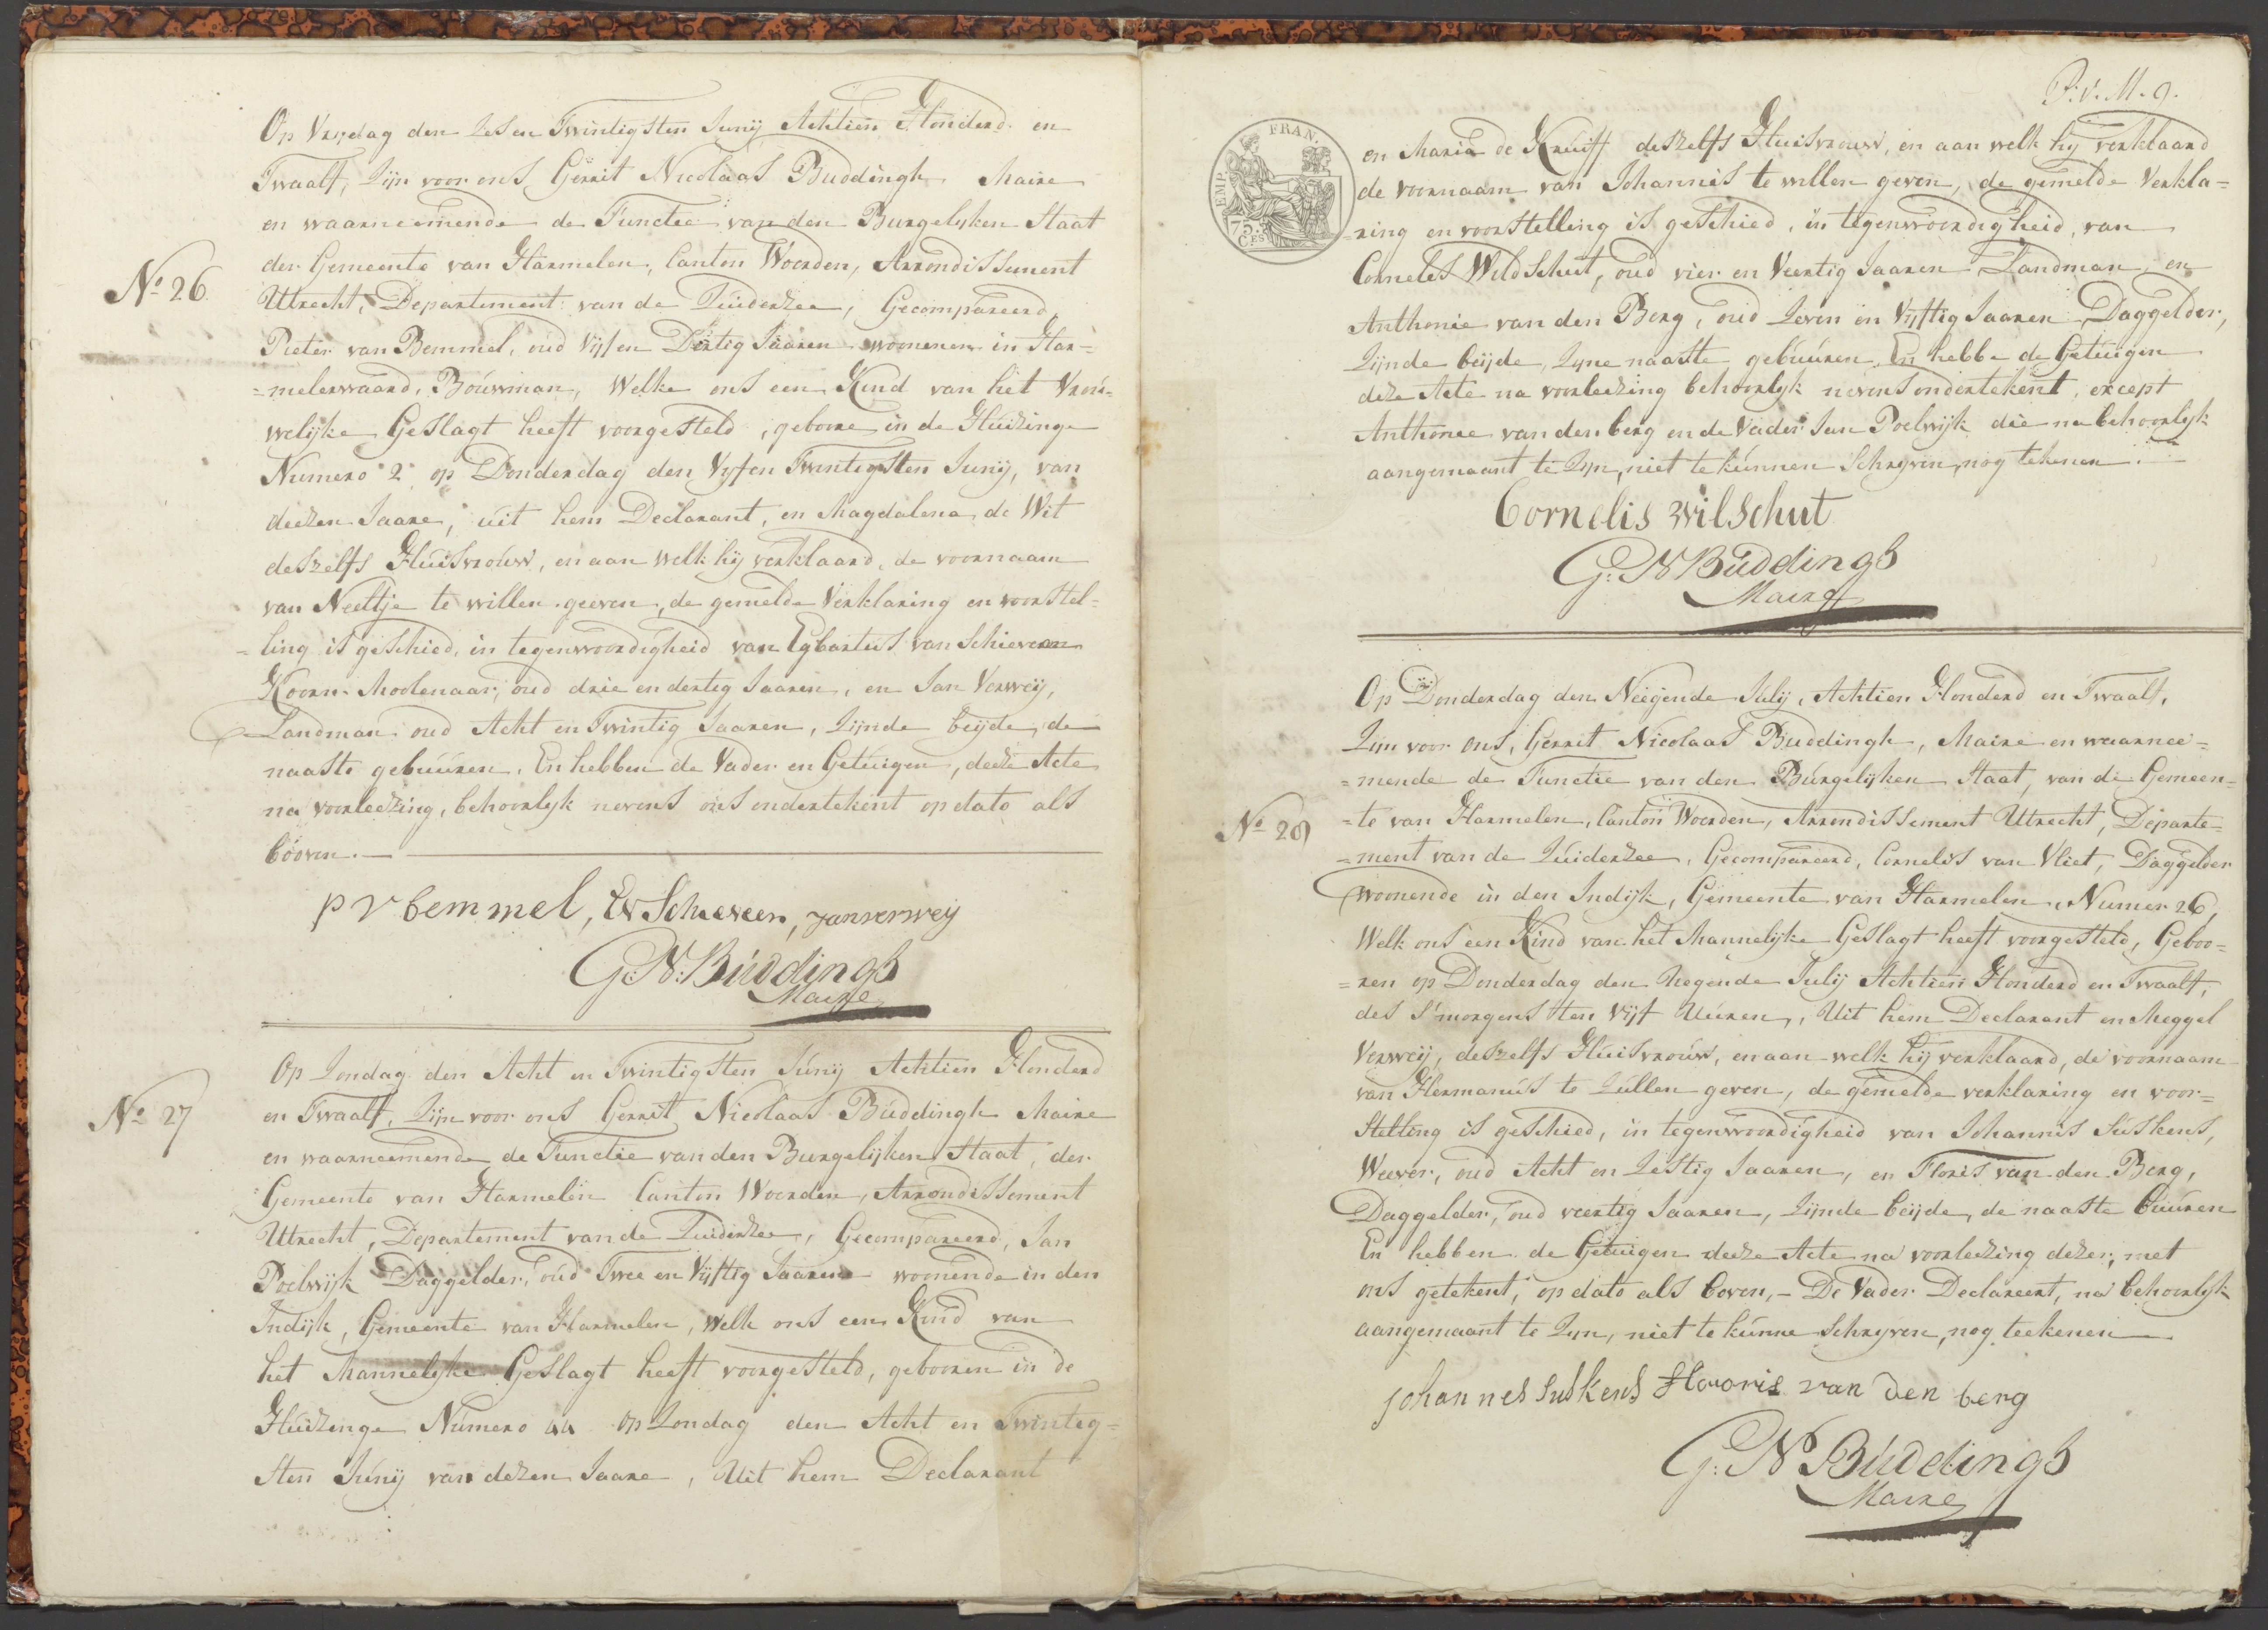 Op Vrydag den Zes en Twintigsten Junij Achtien Honderd en
Twaalf, Zijn voor ons Gerrit Nicolaas Buddingh Maire
en waarneemende de Functie van den Burgelyken Staat
der Gemeente van Harmelen, Canton Woerden, Arrondissement
No 26
Utrecht, Departement van de Zuiderzee, Gecompareerd
Pieter van Bemmel, oud Vijf en Dertig Jaaren woonenen in Har=
=melerwaard, Bouwman, Welke ons een Kind van het Vrou=
welijke Geslagt heeft voorgesteld, geboore in de Huizinge
Numero 2 op Donderdag den Vyf en Twintigsten Junij, van
deezen Jaare, uit hem Declarant, en Magdalena de Wit
deszelfs Huisvrouw, en aan welk hij verklaard, de voornaam
van Neeltje te willen geeven, de gemelde Verklaring en voorstel=
=ling is geschied, in tegenwoordigheid van Egbartus van Schieveen
Koorn Moolenaar, oud drie en dertig Jaaren, en Jan Verweij,
Landman oud Acht en Twintig Jaaren, Zijnde beijde, de
naaste gebuuren, En hebben de Vader en Getuigen, deeze Acte
na voorleezing, behoorlyk nevens ons ondertekent op dato als
booven.
p v bemmel, Ev Schieveen, Jan verweij
G: N: Buddingh
Maire
Op Zondag den Acht en Twintigsten Junij Achtien Honderd
No 27
en Twaalf, Zijn voor ons Gerrit Nicolaas Buddingh Maire
en waarneemende de Functie van den Burgelijken Staat, der
Gemeente van Harmelen Canton Woerden, Arrondissement
Utrecht, Departement van de Zuiderzee, Gecompareerd, Jan
Poelwijk Daggelder, oud Twee en Vijftig Jaaren woonende in den
Indijk, Gemeente van Harmelen, Welk ons een Kind van
het Mannelyke Geslagt heeft voorgesteld, gebooren in de
Huizinge Numero 44 op Zondag den Acht en Twinteg=
sten Junij van dezen Jaare, Uit hem Declarant
P. v. M. 9.
FRAN.
EMP.
75. C.ES
en Maria de Kruiff deszelfs Huisvrouw, en aan welk hij verklaard
de voornaam van Johannis te willen geven, de gemelde Verkla=
=ring en voorstelling is geschied, in tegenwoordigheid, van
Cornelis Wildschut, oud vier en Veertig Jaaren Landman en
Anthonie van den Berg, oud Zeven en Vijftig Jaaren Daggelder,
Zijnde beijde, Zyne naaste gebuuren, En hebbe de Getuigen
deze Acte na voorleezing behoorlyk nevens ondertekent, except
Anthonie van den berg en de Vader Jan Poelwijk die na behoorlyk
aangemaant te Zyn, niet te kunnen Schryven, nog tekenen.
Cornelis wilschut
G: N Buddingh
Maire
Op Donderdag den Neegende July, Achtien Honderd en Twaalf,
Zijn voor ons, Gerrit Nicolaas Buddingh, Maire en waarnee=
=mende de Functie van den Burgelijken Staat, van de Gemeen=
No 28
=te van Harmelen, Canton Woerden, Arrondissement Utrecht, Departe=
=ment van de Zuiderzee, Gecompareerd, Cornelis van Vliet, Daggelder
woonende in den Indijk, Gemeente van Harmelen, Numer 26,
Welk ons een Kind van het Mannelijke Geslagt heeft voorgesteld, Geboo=
=ren op Donderdag den Negende Julij Achtien Honderd en Twaalf,
des S'morgens ten Vijf Uuren, Uit hem Declarant en Meggel
Verweij, deszelfs Huisvrouw, en aan welk hij verklaard, de voornaam
van Hermanus te Zullen geven, de gemelde verklaring en voor=
Stelling is geschied, in tegenwoordigheid van Johannis Suskens,
Weever, oud Acht en Zestig Jaaren, en Floris van den Berg,
Daggelder, oud veertig Jaaren, Zijnde beijde, de naaste buuren
En hebben de Getuigen deeze Acte na voorleezing dezer, met
ons getekent, op dato als boven, - De Vader Declareert, na behoorlyk
aangemaant te Zyn, niet te kunne Schryven, nog teekenen
Johannes Suskens Flooris van den berg
G: N Buddingh
Maire